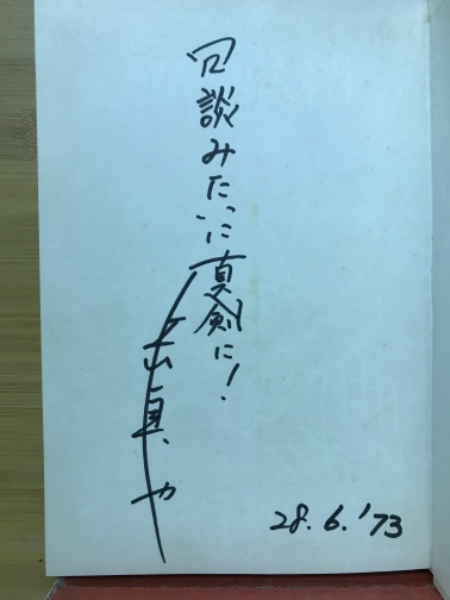 冗談みたいに真剣に!
28.6.'73